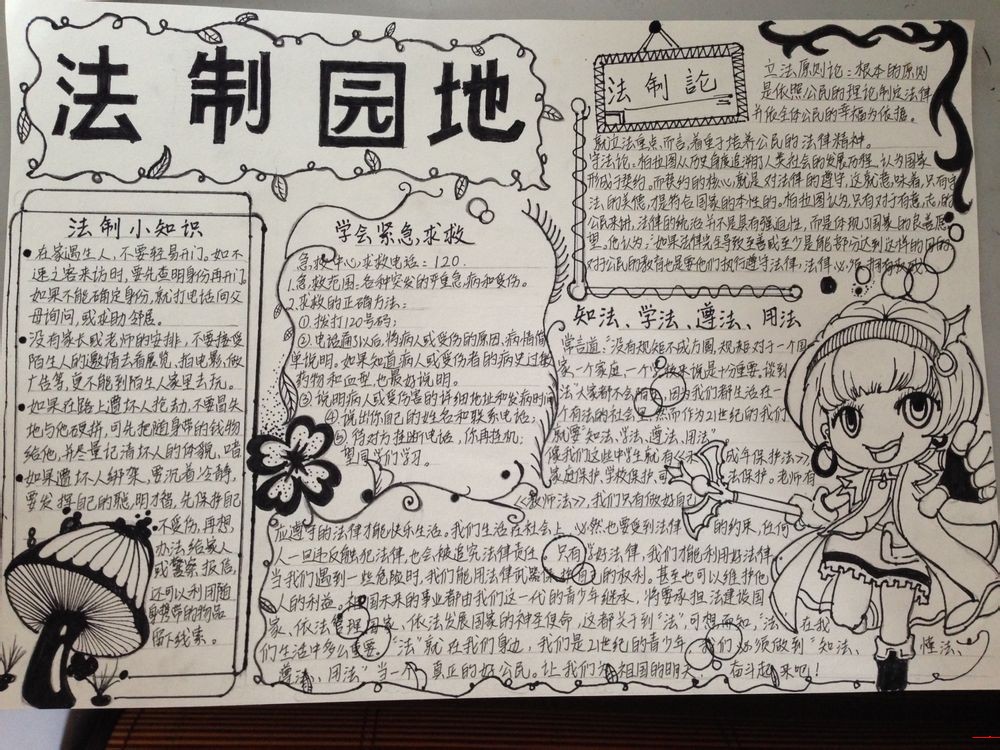 法制园地
法制小知识
在家遇生人，不要轻易开门。如不
速之客来访时，要先查明身份再开门。
如果不能确定身份，就打电话向父
母询问，或求助邻居。
没有家长或老师的安排，不要接受
陌生人的邀请去看展览、拍电影、做
广告等，更不能到陌生人家里去玩。
如果在路上遭坏人抢劫，不要冒失
地与他硬拼，可先把随身带的钱物
给他，并尽量记清坏人的体貌、
如果遭坏人绑架，要沉着冷静，
要发挥自己的聪明才智，先保护自己
不受伤，再想
办法给家人
或警察报信。
还可以利用随
身携带的物品
留下线索。
学会紧急求救
急救中心求救电话：120.
1.急救范围：各种突发的严重急病和受伤。
2.求救的正确方法：
①拨打120号码；
②电话通了以后，将病人或受伤的原因，病情简
单说明。如果知道病人或受伤者的病史过敏
药物和血型，也最好说明。
③说明病人或受伤害的详细地址和发病时间
④说出你自己的姓名和联系电话；
⑤待对方挂断电话，你再挂机；
法制論
立法原则论：根本的原则
是依照公民的理论制定法律
并依全体公民的幸福为依据。
就立法重点而言，着重于培养公民的法律精神。
守法论，柏拉图从历史角度追溯了人类社会的发展历程，认为国家
形成于契约。而契约的核心，就是对法律的遵守。这就意味着，只有守
法的美德，才是符合国家的本性的。柏拉图认为，只有对于有意志的
公民来讲，法律的统治并不是具有强迫性，而是体现了国家的良善愿
望。他认为：“如果法律先生导致至善或至少是能部分达到这样的目的
对于公民的教育也是要他们执行遵守法律，法律必须拥有权威
知法、学法、遵法、用法
常言道：“没有规矩不成方圆，规矩对于一个国
家、一个家庭、一个学校来说是十分重要。谈到
“法”大家都不会陌生，因为我们都生活在一
个有法的社会里。然而作为21世纪的我们
就要“知法、学法、遵法、用法”。
像我们这些中学生就有《未成年保护法》，
家庭保护、学校保护、司法保护。老师有
《教师法》，我们只有做好自己
应遵守的法律才能快乐生活。我们生活在社会上，必然也要受到法律的约束，任何
人一旦违反触犯法律，也会被追究法律责任。只有学好法律，我们才能利用好法律，
当我们遇到一些危险时，我们能用法律武器保护自己的权利。甚至也可以维护他
人的利益。祖国未来的事业都由我们这一代的青少年继承，将要承担法建设国
家、依法管理国家、依法发展国家的神圣使命，这都关于到“法”，可想而知，“法”在我
们生活中多么重要。“法”就在我们身边，我们是21世纪的青少年，我们必须做到“知法、懂法、
遵法、用法”当一个真正的好公民。让我们为祖国的明天，奋斗起来吧！